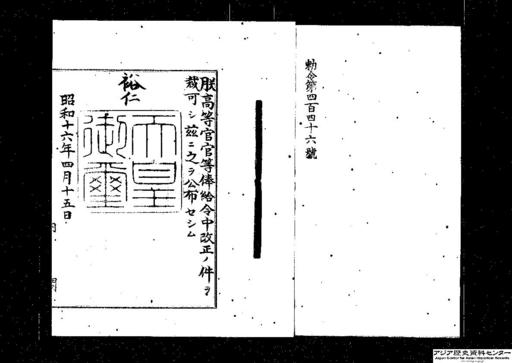 勅令第四百四十六號
朕高等官官等俸給令中改正ノ件ヲ
裁可シ茲ニ之ヲ公布セシム
裕仁
天皇
御璽
昭和十六年四月十五日
アジア歴史資料センター
Japan Center for Asian Historical Records